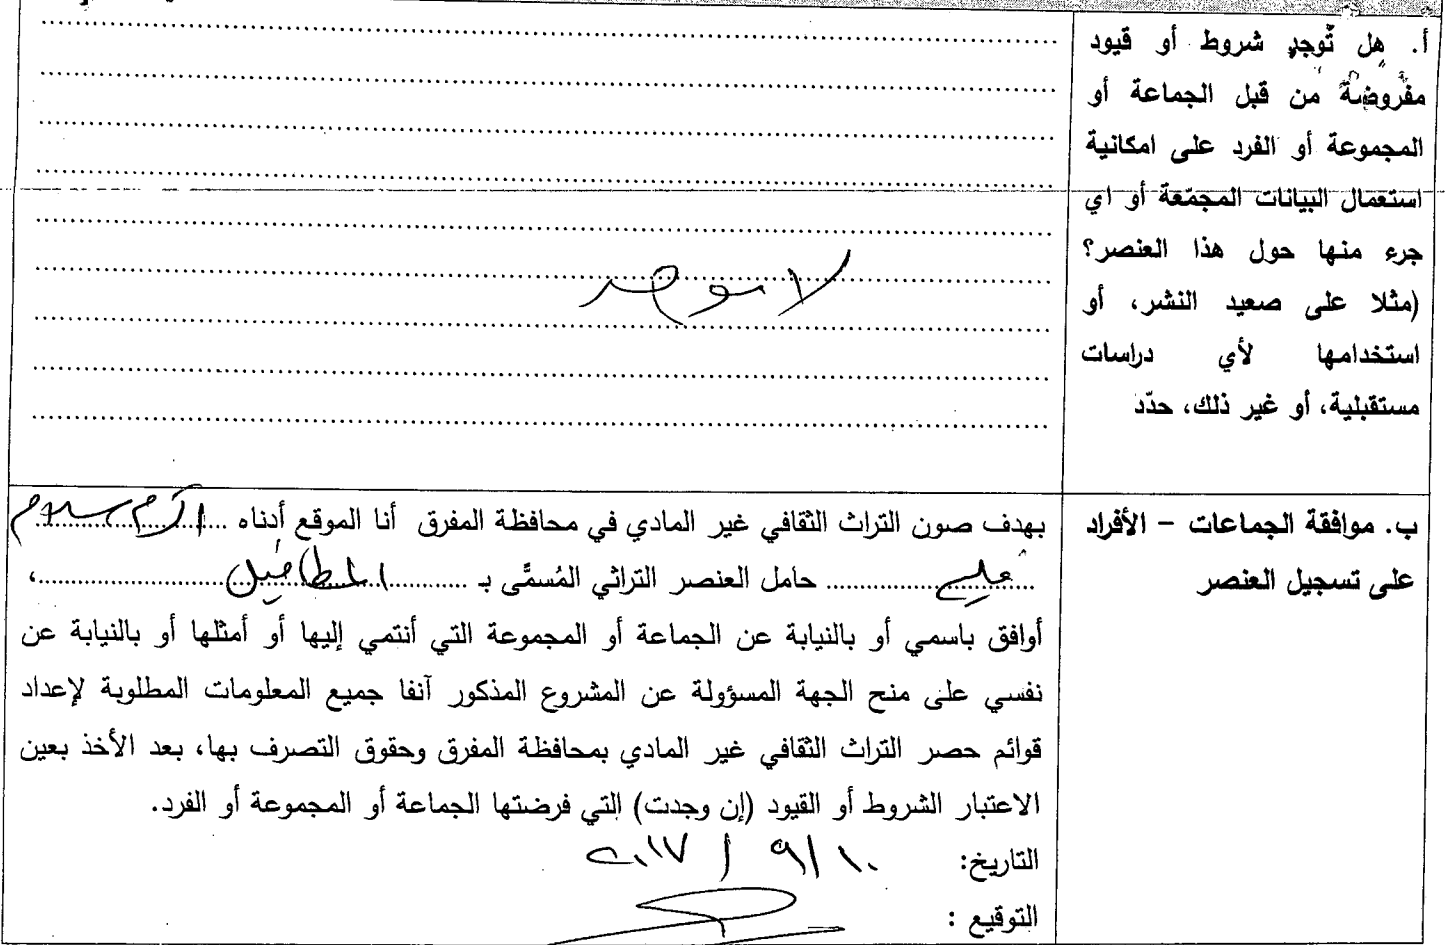 أ. هل تُوجد شروط أو قيود
مفروضة من قبل الجماعة أو
المجموعة أو الفرد على امكانية
استعمال البيانات المجمّعة أو اي
جرء منها حول هذا العنصر؟
(مثلا على صعيد النشر، أو
استخدامها لأي دراسات
مستقبلية، أو غير ذلك، حدّد
لا يوجد
ب. موافقة الجماعات – الأفراد
على تسجيل العنصر
بهدف صون التراث الثقافي غير المادي في محافظة المفرق أنا الموقع أدناه اكرم سلام
علي حامل العنصر التراثي المُسمَّى بـ ،
أوافق باسمي أو بالنيابة عن الجماعة أو المجموعة التي أنتمي إليها أو أمثلها أو بالنيابة عن
نفسي على منح الجهة المسؤولة عن المشروع المذكور آنفا جميع المعلومات المطلوبة لإعداد
قوائم حصر التراث الثقافي غير المادي بمحافظة المفرق وحقوق التصرف بها، بعد الأخذ بعين
الاعتبار الشروط أو القيود (إن وجدت) التي فرضتها الجماعة أو المجموعة أو الفرد.
التاريخ: ١٠ / ٩ / ٢٠١٧
التوقيع :